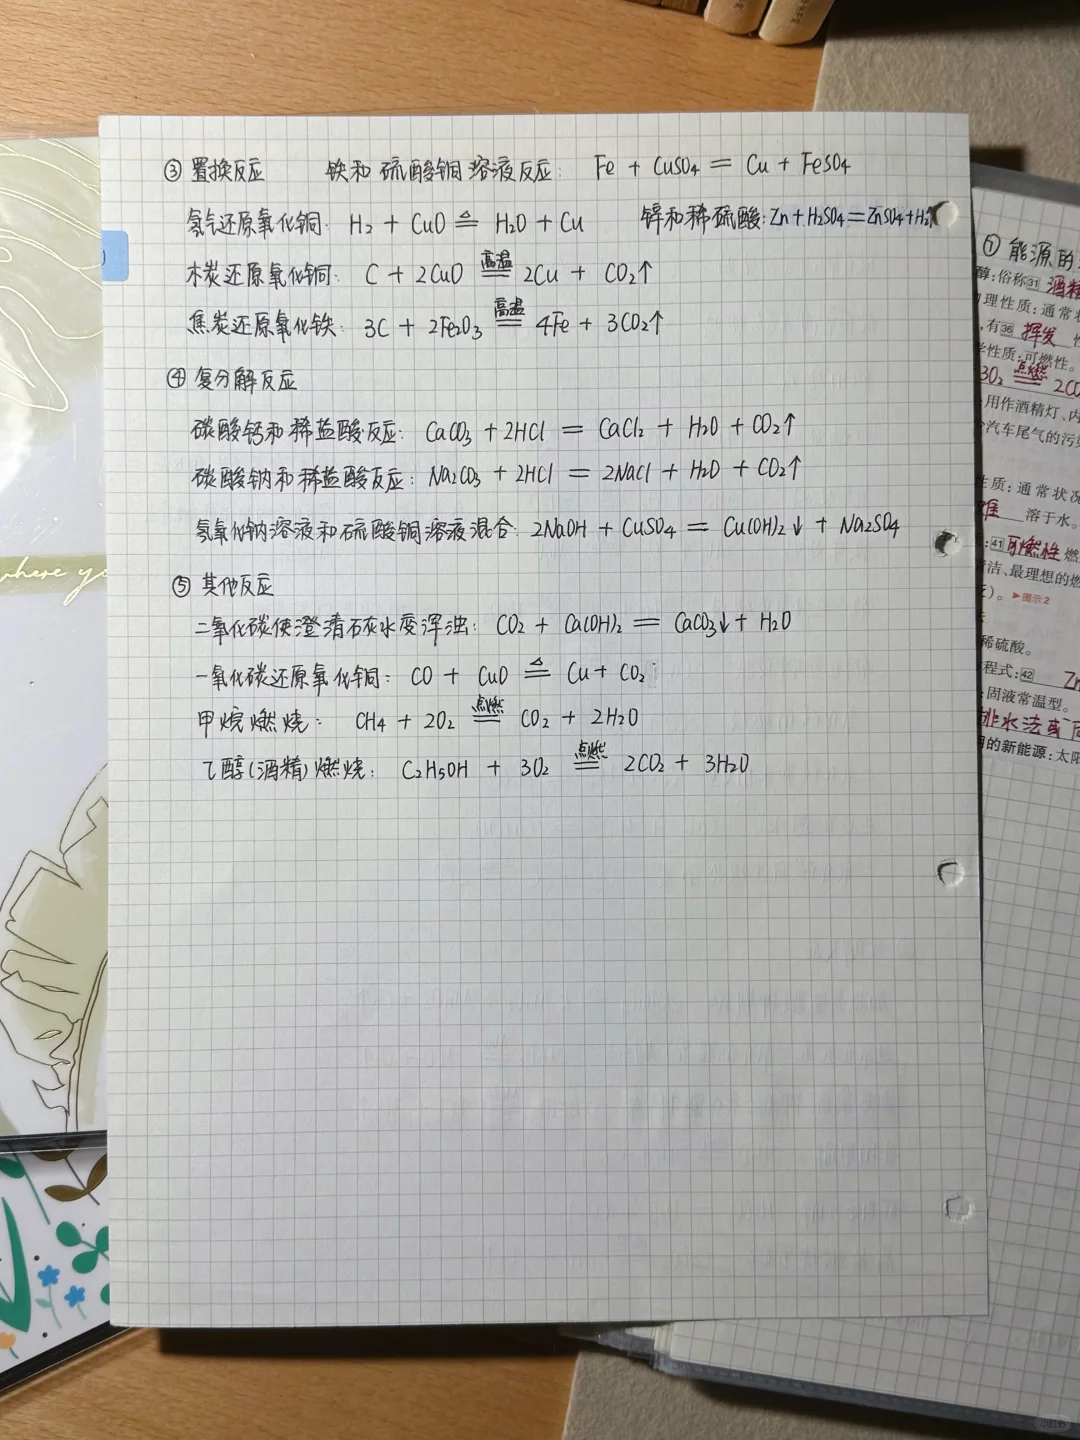 ③ 置换反应 铁和硫酸铜溶液反应: Fe + CuSO₄ = Cu + FeSO₄
氢气还原氧化铜: H₂ + CuO ≜ H₂O + Cu 锌和稀硫酸: Zn + H₂SO₄ = ZnSO₄ + H₂
木炭还原氧化铜: C + 2CuO 高温 == 2Cu + CO₂↑
焦炭还原氧化铁: 3C + 2Fe₂O₃ 高温 == 4Fe + 3CO₂↑
④ 复分解反应
碳酸钙和稀盐酸反应: CaCO₃ + 2HCl = CaCl₂ + H₂O + CO₂↑
碳酸钠和稀盐酸反应: Na₂CO₃ + 2HCl = 2NaCl + H₂O + CO₂↑
氢氧化钠溶液和硫酸铜溶液混合: 2NaOH + CuSO₄ = Cu(OH)₂↓ + Na₂SO₄
⑤ 其他反应
二氧化碳使澄清石灰水变浑浊: CO₂ + Ca(OH)₂ = CaCO₃↓ + H₂O
一氧化碳还原氧化铜: CO + CuO ≜ Cu + CO₂
甲烷燃烧: CH₄ + 2O₂ 点燃 == CO₂ + 2H₂O
乙醇(酒精)燃烧: C₂H₅OH + 3O₂ 点燃 == 2CO₂ + 3H₂O
where yo
① 能源的
醇: 俗称31 酒精
理性质: 通常状
, 有36 挥发 性
性质: 可燃性。
3O₂ 点燃 == 2CO
用作酒精灯、内
汽车尾气的污染
性质: 通常状况
难 溶于水。
: 41 可燃性 燃
洁、最理想的燃
)。▶图示2
稀硫酸。
程式: 42 Zn
固液常温型。
排水法或向
用的新能源: 太阳